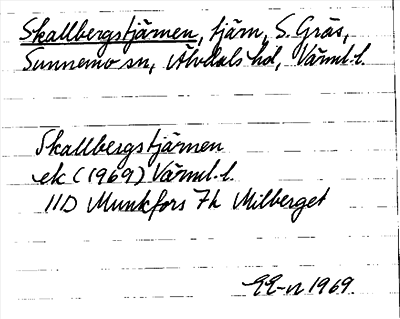 Skallbergstjärnen, tjärn, S. Gräs,
Sunnemo sn, Älvdals hd, Värml. l.
Skallbergstjärnen
ek (1969) Värml. l.
11D Munkfors 7h Milberget
1969.